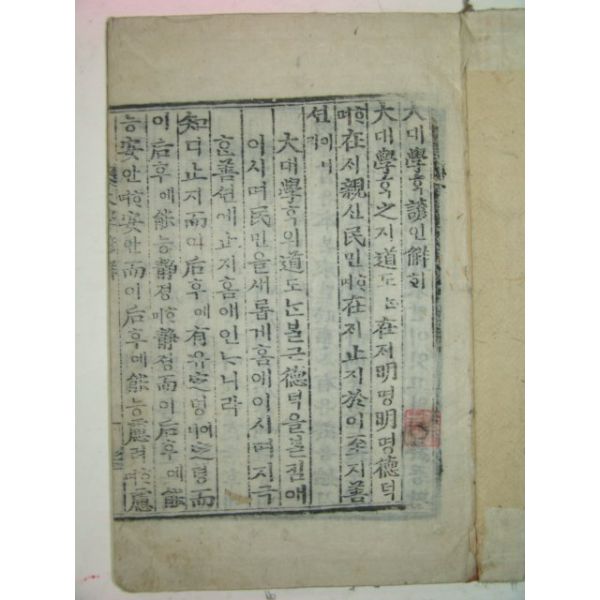 大대學ᄒᆞᆨ諺언解ᄒᆡ
大대學ᄒᆞᆨ之지道도ᄂᆞᆫ在ᄌᆡ明명明명德덕
ᄒᆞ며在ᄌᆡ親신民민ᄒᆞ며在ᄌᆡ止지於어至지善
션이니
大대學ᄒᆞᆨ의道도ᄂᆞᆫᄇᆞᆯ근德덕을ᄇᆞᆯ킴애
이시며民민을새롭게홈애이시며지극
ᄒᆞᆫ善션애止지홈애인ᄂᆞ니라
知디止지而이后후에有유定뎡이니定뎡而
이后후에能능静졍ᄒᆞ며静졍而이后후에能
능安안ᄒᆞ며安안而이后후에能능慮려ᄒᆞ며慮